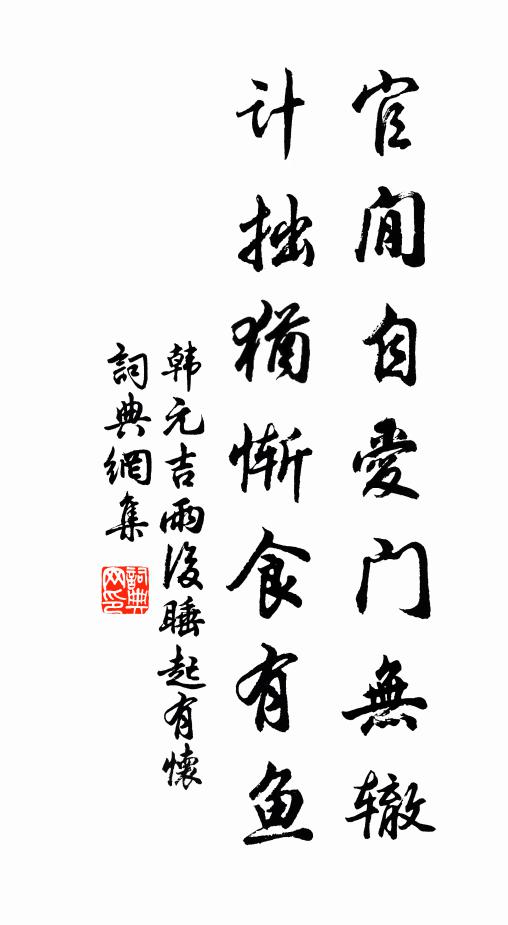 官閒自愛门無辙
计拙猶慚食有鱼
韩元吉雨後睡起有懷
詞典網集
詞典网印